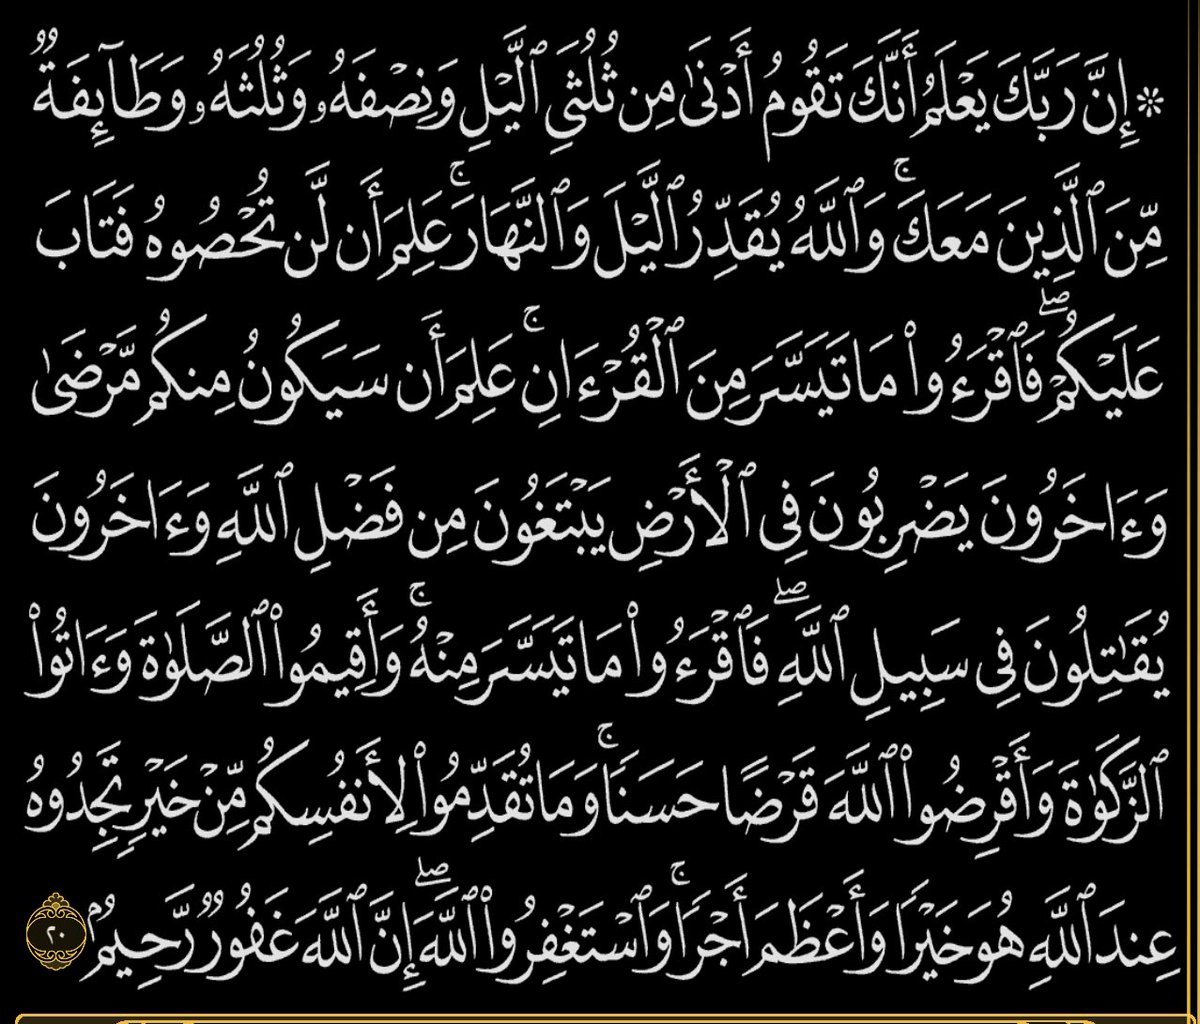 ۞ إِنَّ رَبَّكَ يَعْلَمُ أَنَّكَ تَقُومُ أَدْنَىٰ مِن ثُلُثَيِ ٱلَّيْلِ وَنِصْفَهُۥ وَثُلُثَهُۥ وَطَآئِفَةٌ
مِّنَ ٱلَّذِينَ مَعَكَۚ وَٱللَّهُ يُقَدِّرُ ٱلَّيْلَ وَٱلنَّهَارَۚ عَلِمَ أَن لَّن تُحْصُوهُ فَتَابَ
عَلَيْكُمْۖ فَٱقْرَءُوا۟ مَا تَيَسَّرَ مِنَ ٱلْقُرْءَانِۚ عَلِمَ أَن سَيَكُونُ مِنكُم مَّرْضَىٰ
وَءَاخَرُونَ يَضْرِبُونَ فِى ٱلْأَرْضِ يَبْتَغُونَ مِن فَضْلِ ٱللَّهِ وَءَاخَرُونَ
يُقَـٰتِلُونَ فِى سَبِيلِ ٱللَّهِۖ فَٱقْرَءُوا۟ مَا تَيَسَّرَ مِنْهُۚ وَأَقِيمُوا۟ ٱلصَّلَوٰةَ وَءَاتُوا۟
ٱلزَّكَوٰةَ وَأَقْرِضُوا۟ ٱللَّهَ قَرْضًا حَسَنًاۚ وَمَا تُقَدِّمُوا۟ لِأَنفُسِكُم مِّنْ خَيْرٍ تَجِدُوهُ
عِندَ ٱللَّهِ هُوَ خَيْرًا وَأَعْظَمَ أَجْرًاۚ وَٱسْتَغْفِرُوا۟ ٱللَّهَۖ إِنَّ ٱللَّهَ غَفُورٌ رَّحِيمٌۢ ٢٠